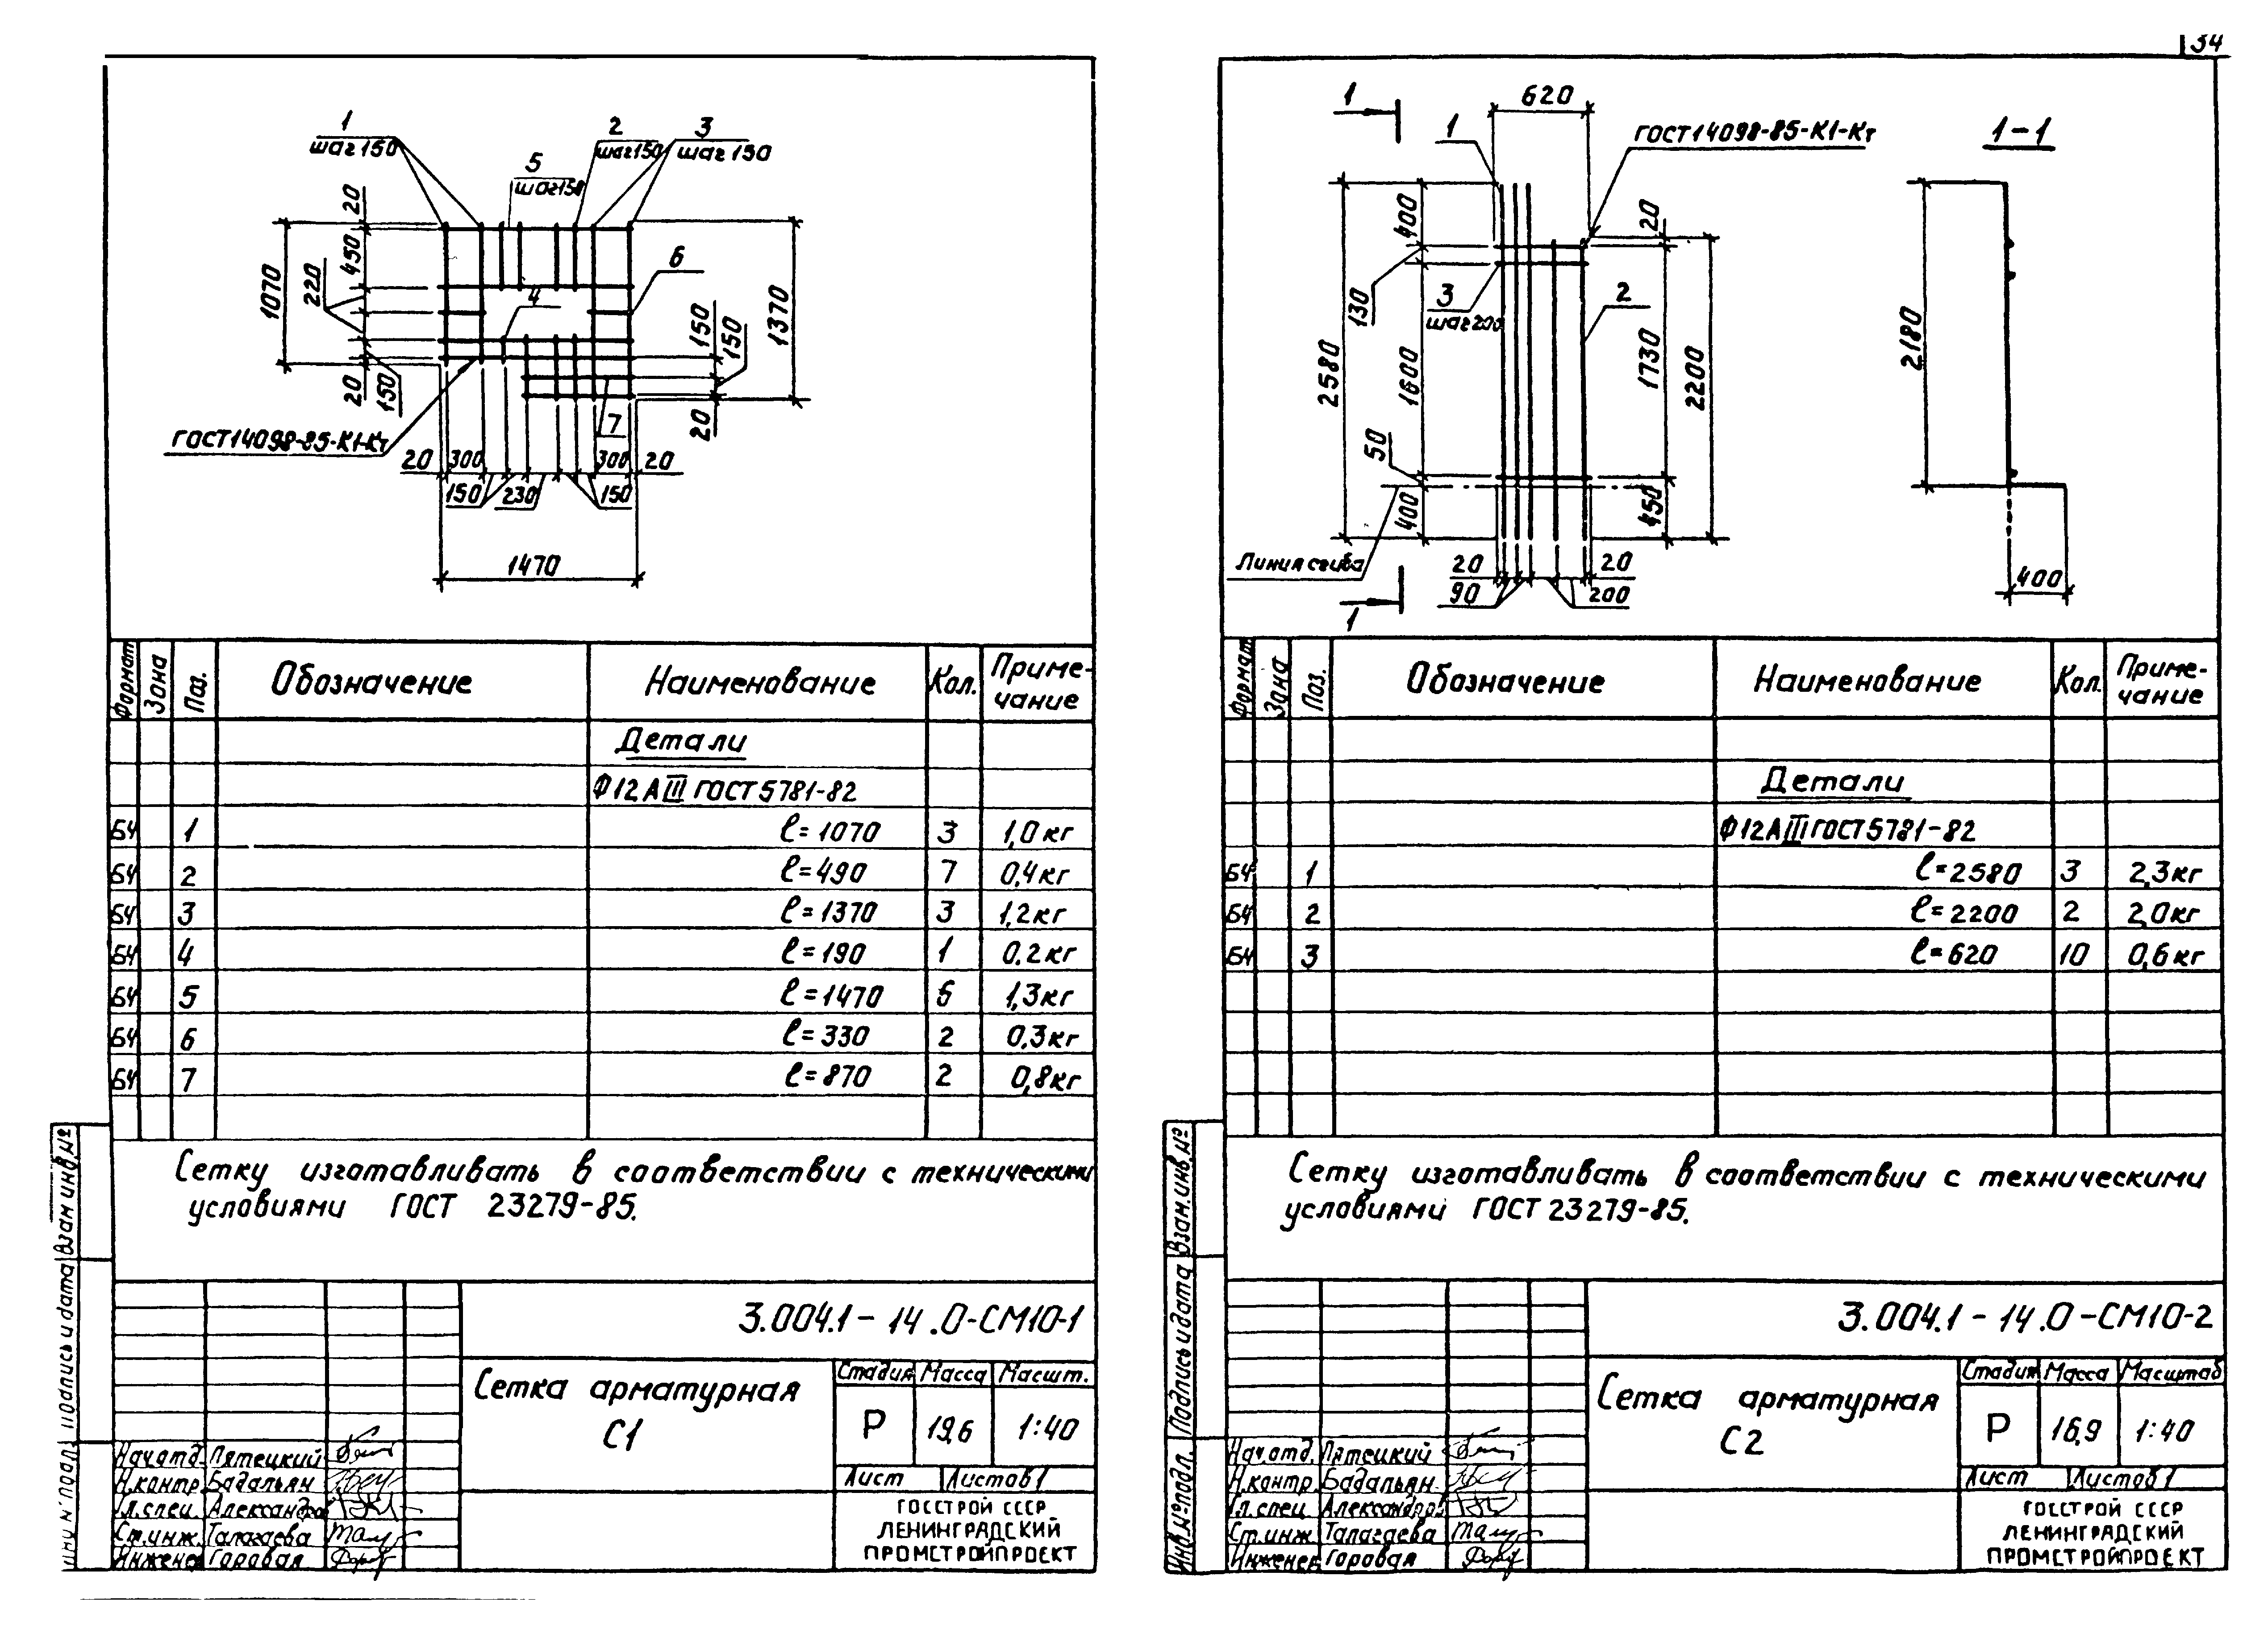 34
1
шаг 150
2
шаг 150
3
шаг 150
5
шаг 150
20
450
220
1070
20
150
4
6
7
1370
150
150
20
ГОСТ14098-85-К1-Кт
20 300 300 20
150 230 150
1470
Формат Зона Поз. Обозначение Наименование Кол. Приме-
чание
Детали
Ф12АIII ГОСТ5781-82
БЧ 1 ℓ=1070 3 1,0кг
БЧ 2 ℓ=490 7 0,4кг
БЧ 3 ℓ=1370 3 1,2кг
БЧ 4 ℓ=190 1 0,2кг
БЧ 5 ℓ=1470 5 1,3кг
БЧ 6 ℓ=330 2 0,3кг
БЧ 7 ℓ=870 2 0,8кг
Сетку изготавливать в соответствии с техническими
условиями ГОСТ 23279-85.
3.004.1-14.0-СМ10-1
Сетка арматурная
С1
Стадия Масса Масшт.
Р 19,6 1:40
Лист Листов 1
ГОССТРОЙ СССР
ЛЕНИНГРАДСКИЙ
ПРОМСТРОЙПРОЕКТ
Нач.отд. Пятецкий
Н.контр. Бадальян
Гл.спец. Александров
Ст.инж. Талагаева
Инженер Горовая
Инв.№ подл. Подпись и дата Взам.инв.№
1
1
620
ГОСТ14098-85-К1-Кт
1-1
2580
400
130
1600
50
400
3
шаг 200
2
20
1730
2200
450
Линия сгиба
20 20
90 200
1
2180
400
Формат Зона Поз. Обозначение Наименование Кол. Приме-
чание
Детали
Ф12АIII ГОСТ5781-82
БЧ 1 ℓ=2580 3 2,3кг
БЧ 2 ℓ=2200 2 2,0кг
БЧ 3 ℓ=620 10 0,6кг
Сетку изготавливать в соответствии с техническими
условиями ГОСТ 23279-85.
3.004.1-14.0-СМ10-2
Сетка арматурная
С2
Стадия Масса Масштаб
Р 16,9 1:40
Лист Листов 1
ГОССТРОЙ СССР
ЛЕНИНГРАДСКИЙ
ПРОМСТРОЙПРОЕКТ
Нач.отд. Пятецкий
Н.контр. Бадальян
Гл.спец. Александров
Ст.инж. Талагаева
Инженер Горовая
Инв.№ подл. Подпись и дата Взам.инв.№